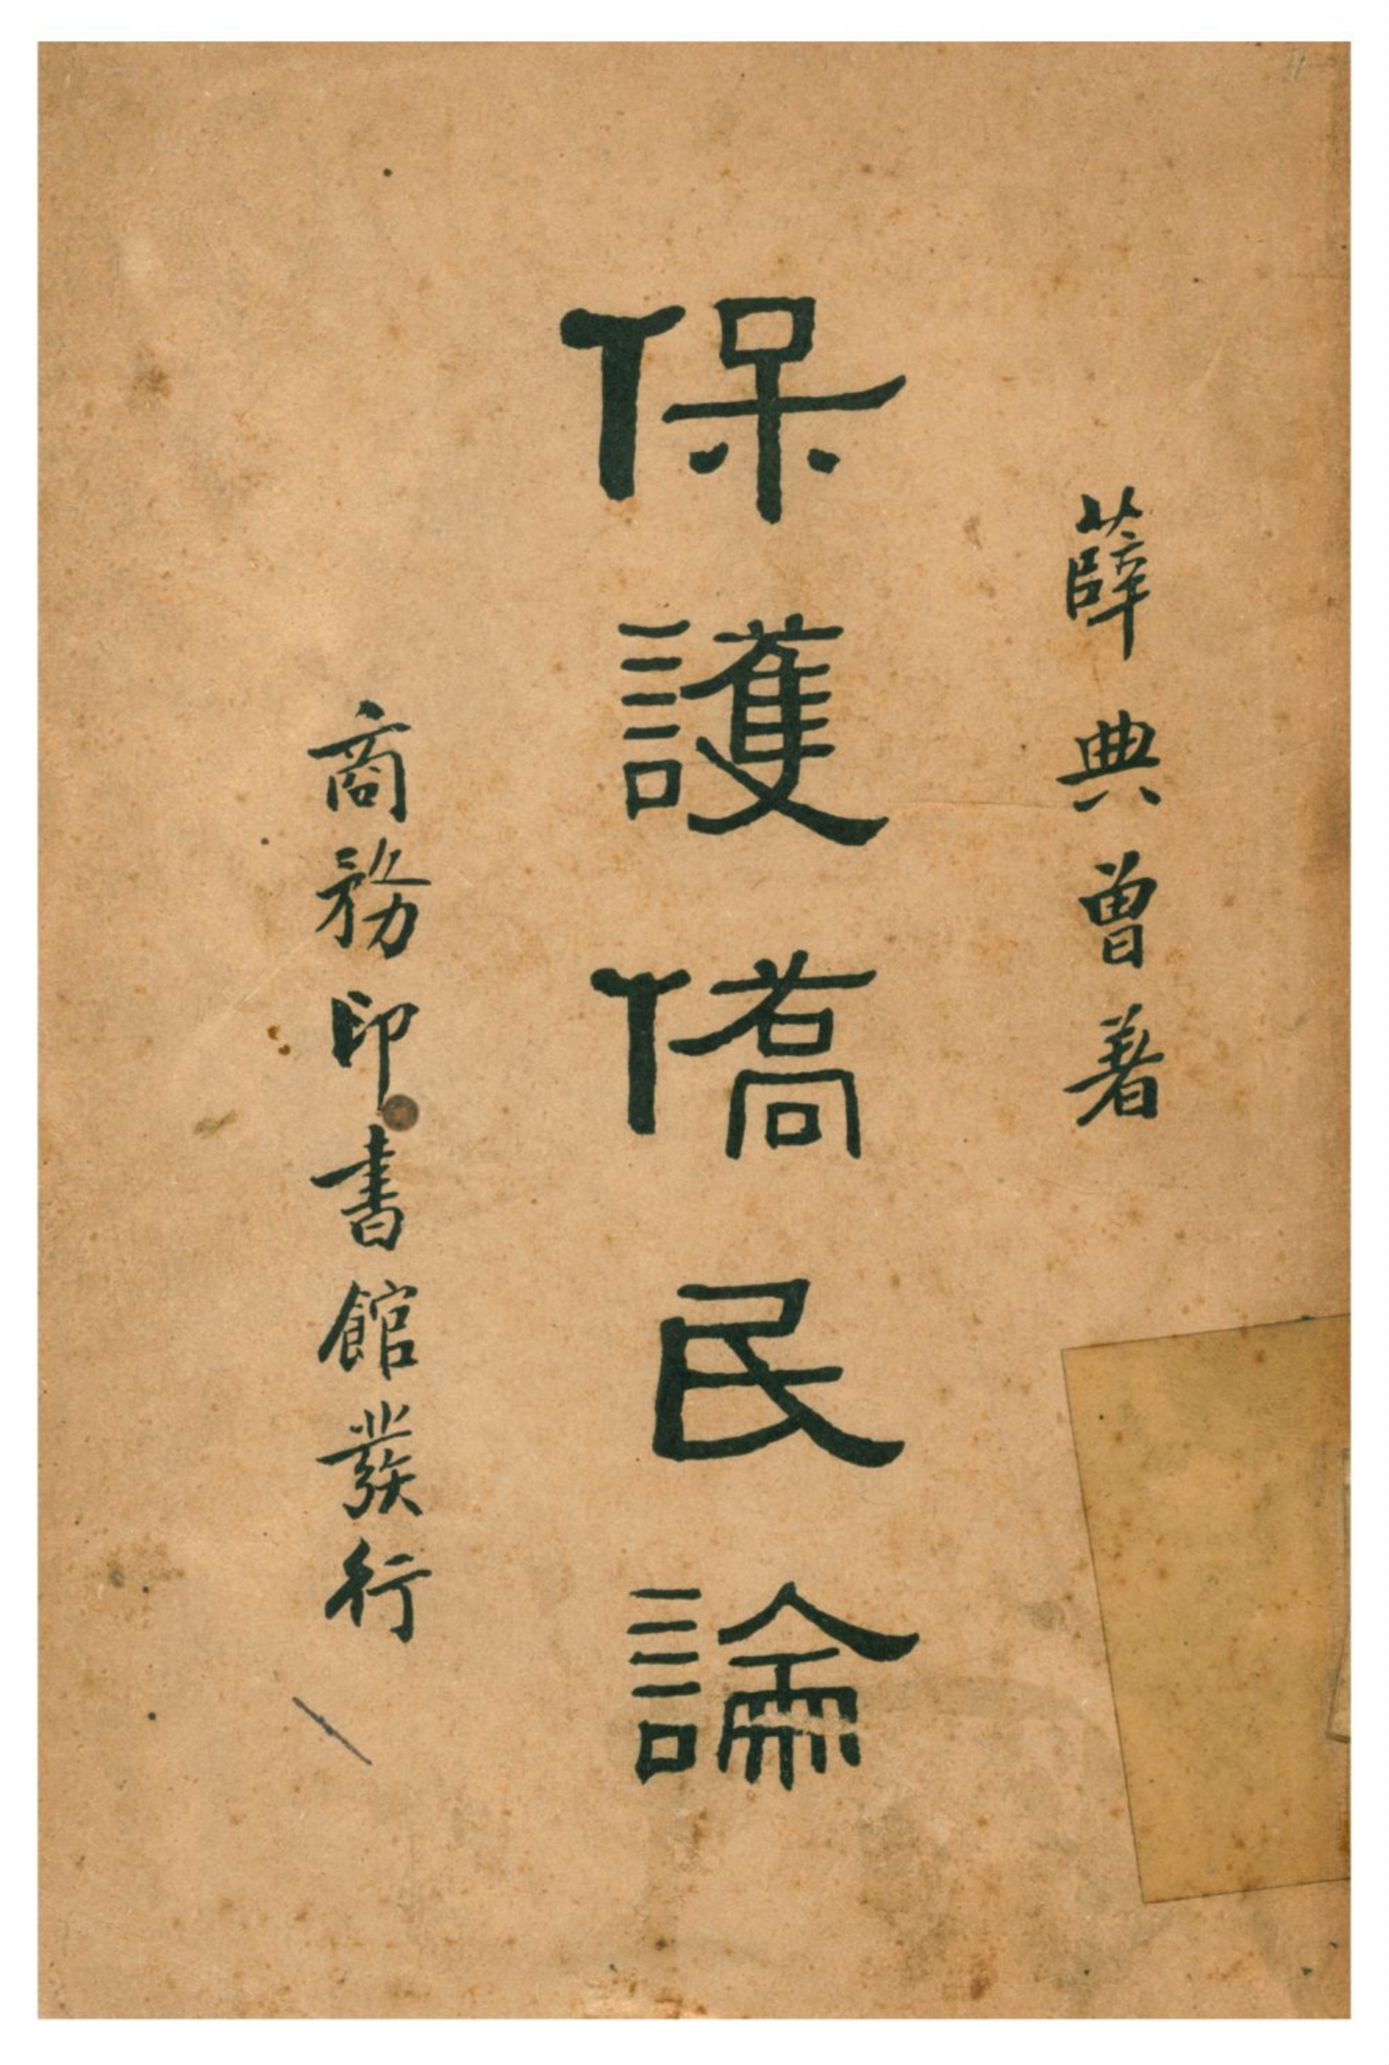 薛典曾著
保護僑民論
商務印書館發行